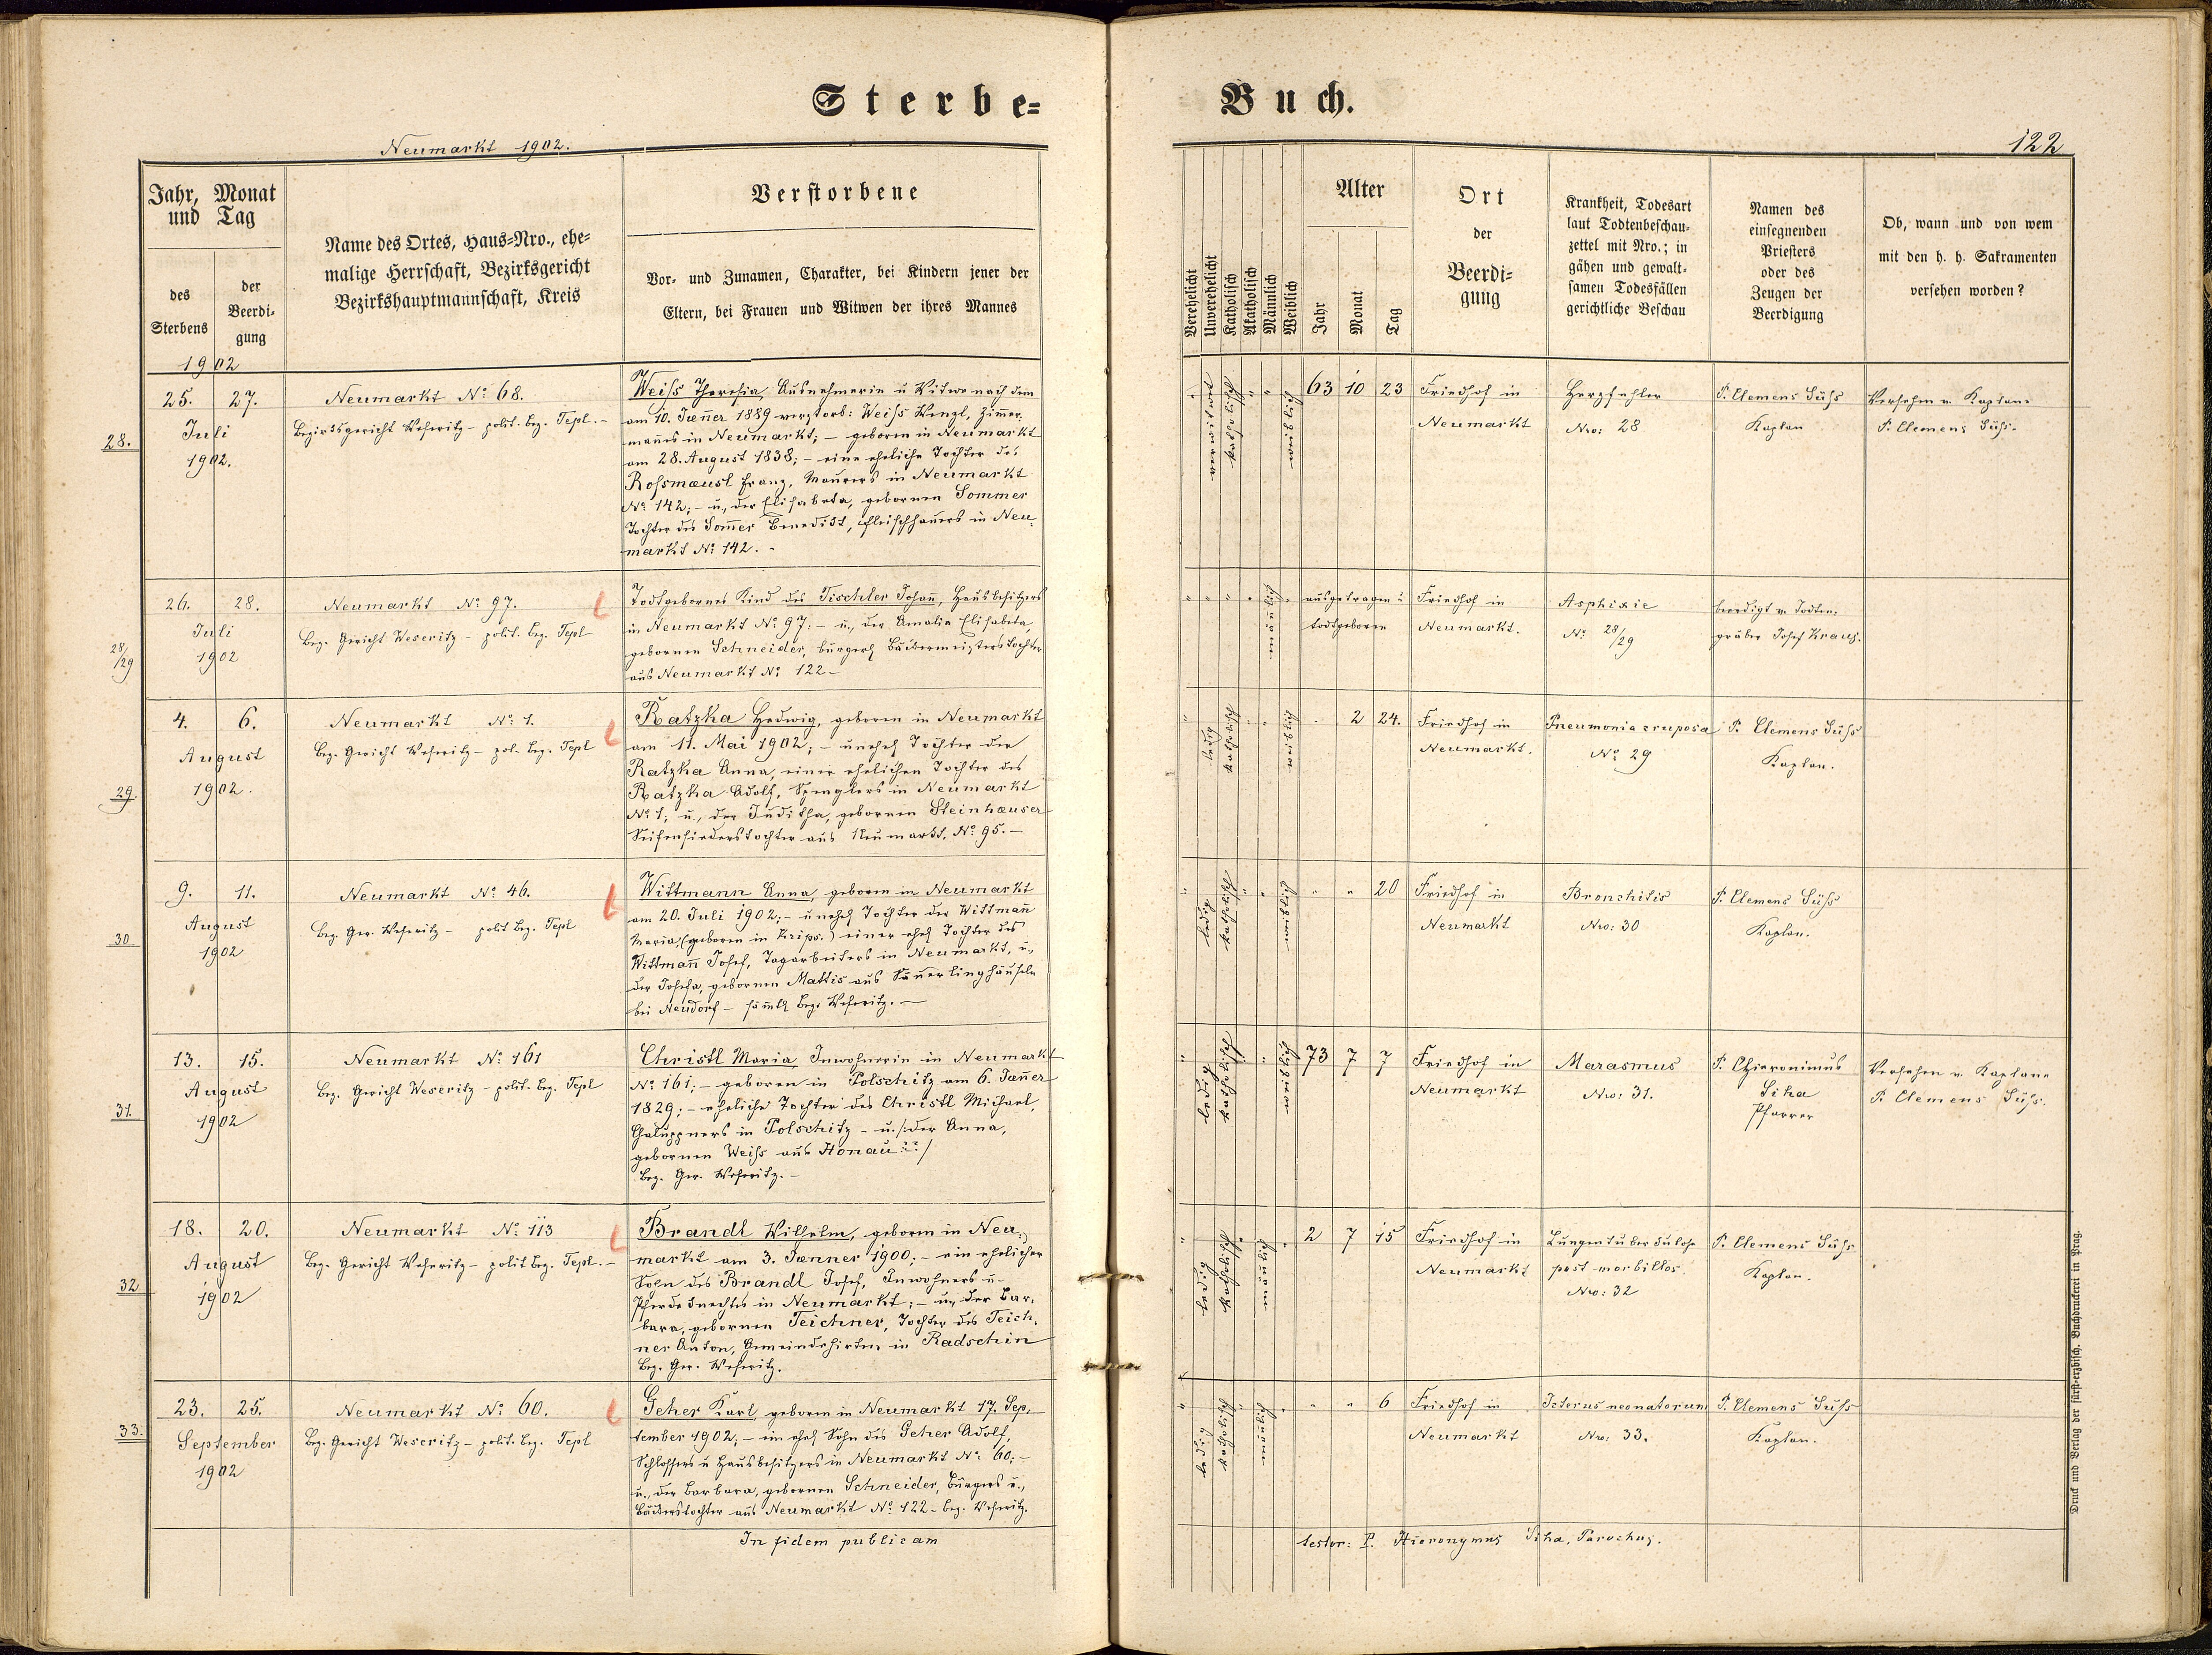 Sterbe-
Buch.
Neumarkt 1902.
122
Jahr, Monat
und Tag
des
Sterbens
der
Beerdi-
gung
Name des Ortes, Haus-Nro., ehe-
malige Herrschaft, Bezirksgericht
Bezirkshauptmannschaft, Kreis
Verstorbene
Vor- und Zunamen, Charakter, bei Kindern jener der
Eltern, bei Frauen und Witwen der ihres Mannes
Verehelicht
Unverehelicht
Katholisch
Akatholisch
Männlich
Weiblich
Alter
Jahr
Monat
Tag
Ort
der
Beerdi-
gung
Krankheit, Todesart
laut Todtenbeschau-
zettel mit Nro.; in
gähen und gewalt-
samen Todesfällen
gerichtliche Beschau
Namen des
einsegnenden
Priesters
oder des
Zeugen der
Beerdigung
Ob, wann und von wem
mit den h. h. Sakramenten
versehen worden?
1902
28.
25. 27.
Juli
1902.
Neumarkt No: 68.
Bezirksgericht Weseritz - polit. Bez. Tepl. -
Weiss Theresia, Ausnehmerin u Witwe nach dem
am 10. Jænner 1889 verstorb: Weiss Wenzl, Zimmer-
manns in Neumarkt; - geboren in Neumarkt
am 28. August 1838; - eine eheliche Tochter des
Rossmæusl Franz, Maurers in Neumarkt
No 142; - u., der Elisabeta, gebornen Sommer
Tochter des Sommer Benedikt, Fleischhauers in Neu-
markt No: 142. -
verwitwet
katholisch
Weiblich
63 10 23
Friedhof in
Neumarkt
Herzfehler
Nro: 28
P. Clemens Süss
Kaplan
Versehen v. Kaplane
P. Clemens Süss.
28/29
26. 28.
Juli
1902
Neumarkt No: 97.
Bez. Gericht Weseritz - polit. Bez. Tepl
Todtgebornes Kind des Tischler Johann, Hausbesitzers
in Neumarkt No 97: - u., der Amalia Elisabeta,
gebornen Schneider, bürgerl Bäckermeisterstochter
aus Neumarkt No: 122 -
ausgetragen u
todtgeboren
Friedhof in
Neumarkt.
Asphixie
No: 28/29
beerdigt v. Todten-
gräber Josef Kraus.
29.
4. 6.
August
1902.
Neumarkt No: 1.
Bez. Gericht Weseritz - pol. Bez. Tepl
Ratzka Hedwig, geboren in Neumarkt
am 11. Mai 1902; - unehel Tochter der
Ratzka Anna, einer ehelichen Tochter des
Ratzka Adolf, Spenglers in Neumarkt
No 1; u., der Juditha, gebornen Steinhæuser
Seifensiederstochter aus Neumarkt. No 95. -
ledig
katholisch
Weiblich
2 24.
Friedhof in
Neumarkt.
Pneumonia cruposa
No: 29
P. Clemens Süss
Kaplan.
30
9. 11.
August
1902
Neumarkt No: 46.
Bez. Ger. Weseritz - polit Bez. Tepl
Wittmann Anna, geboren in Neumarkt
am 20. Juli 1902; - unehel Tochter der Wittmann
Maria, (geboren in Krips.) einer ehel Tochter des
Wittmann Josef, Tagarbeiters in Neumarkt, u.,
der Josefa, gebornen Mattis aus Sauerlinghäuseln
bei Neudorf - sämtl Bez. Weseritz. -
ledig
katholisch
Weiblich
20
Friedhof in
Neumarkt
Bronchitis
Nro: 30
P. Clemens Süss
Kaplan.
31.
13. 15.
August
1902
Neumarkt No: 161
Bez. Gericht Weseritz - polit. Bez. Tepl
Christl Maria Inwohnerin in Neumarkt
No 161; - geboren in Polschitz am 6. Jænner
1829; - eheliche Tochter des Christl Michael,
Chaluppners in Polschitz - u. /: der Anna,
gebornen Weiss aus Honau ?? /
Bez. Ger. Weseritz. -
ledig
katholisch
Weiblich
73 7 7
Friedhof in
Neumarkt
Marasmus
Nro: 31.
P. Hieronimus
Siha
Pfarrer
Versehen v. Kaplane
P. Clemens Süss.
32.
18. 20.
August
1902
Neumarkt No: 113
Bez. Gericht Weseritz - polit Bez. Tepl. -
Brandl Wilhelm, geboren in Neu-
markt am 3. Jænner 1900; - ein ehelicher
Sohn des Brandl Josef, Inwohners u-
Pferdeknechtes in Neumarkt; - u., der Bar-
bara, gebornen Teichner, Tochter des Teich-
ner Anton, Gemeindehirten in Radschin
Bez. Ger. Weseritz.
ledig
katholisch
2 7 15
Friedhof in
Neumarkt
Lungentuberkulose
post morbillos.
Nro: 32
P. Clemens Süss
Kaplan.
33.
23. 25.
September
1902
Neumarkt No: 60.
Bez. Gericht Weseritz - polit. Bez. Tepl
Geher Karl geboren in Neumarkt 17. Sep-
tember 1902; - ein ehel Sohn des Geher Adolf,
Schlossers u Hausbesitzers in Neumarkt No: 60; -
u., der Barbara, gebornen Schneider, Bürgers u.,
Bäckerstochter aus Neumarkt No 122 - bez. Weseritz.
ledig
katholisch
6
Friedhof in
Neumarkt
Icterus neonatorum
Nro: 33.
P. Clemens Süss
Kaplan.
In fidem publicam
testor: P. Hieronymus Siha, Parochus.
Druck und Verlag der fürst-erzbisch. Buchdruckerei in Prag.